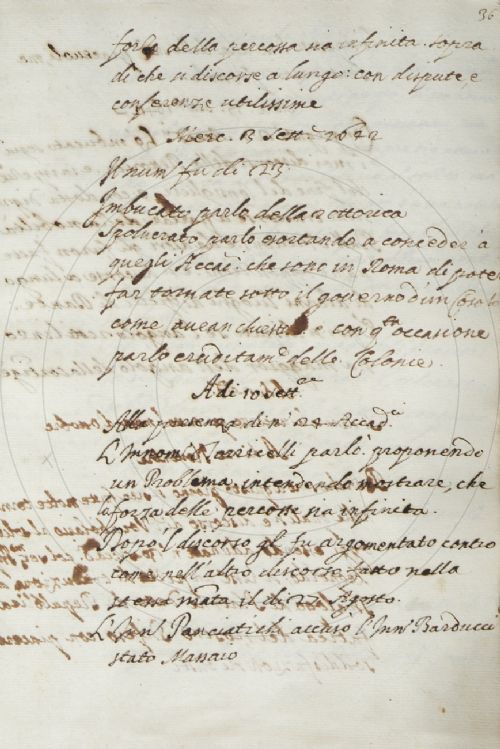 36
forza della percossa sia infinita. sopra
di che si discorse a lungo: con dispute, e
conferenze utilissime
Merc. 3 Sett.e 1642
Il num.o fu di 23
Imbucato parlò della rettorica
Spolverato parlò esortando a conceder à
quegli Accad.i che sono in Roma di poter
far tornate sotto il governo d'un
come avean chiesto e con q.ta occasione
parlò eruditam.e delle Colonie.
A di 10 Sett.e
Alla presenza di n.o 24 Accad.i
L'Innom.o Torricelli parlò proponendo
un Problema, intendendo mostrare, che
la forza delle percosse sia infinita.
Dopo 'l discorso gli fu argomentato contro
come nell'altro discorso fatto nella
stessa mat.a il di 27 Agosto.
L'Inn.o Panciatichi accusò l'Inn.o Barducci
stato Massaio